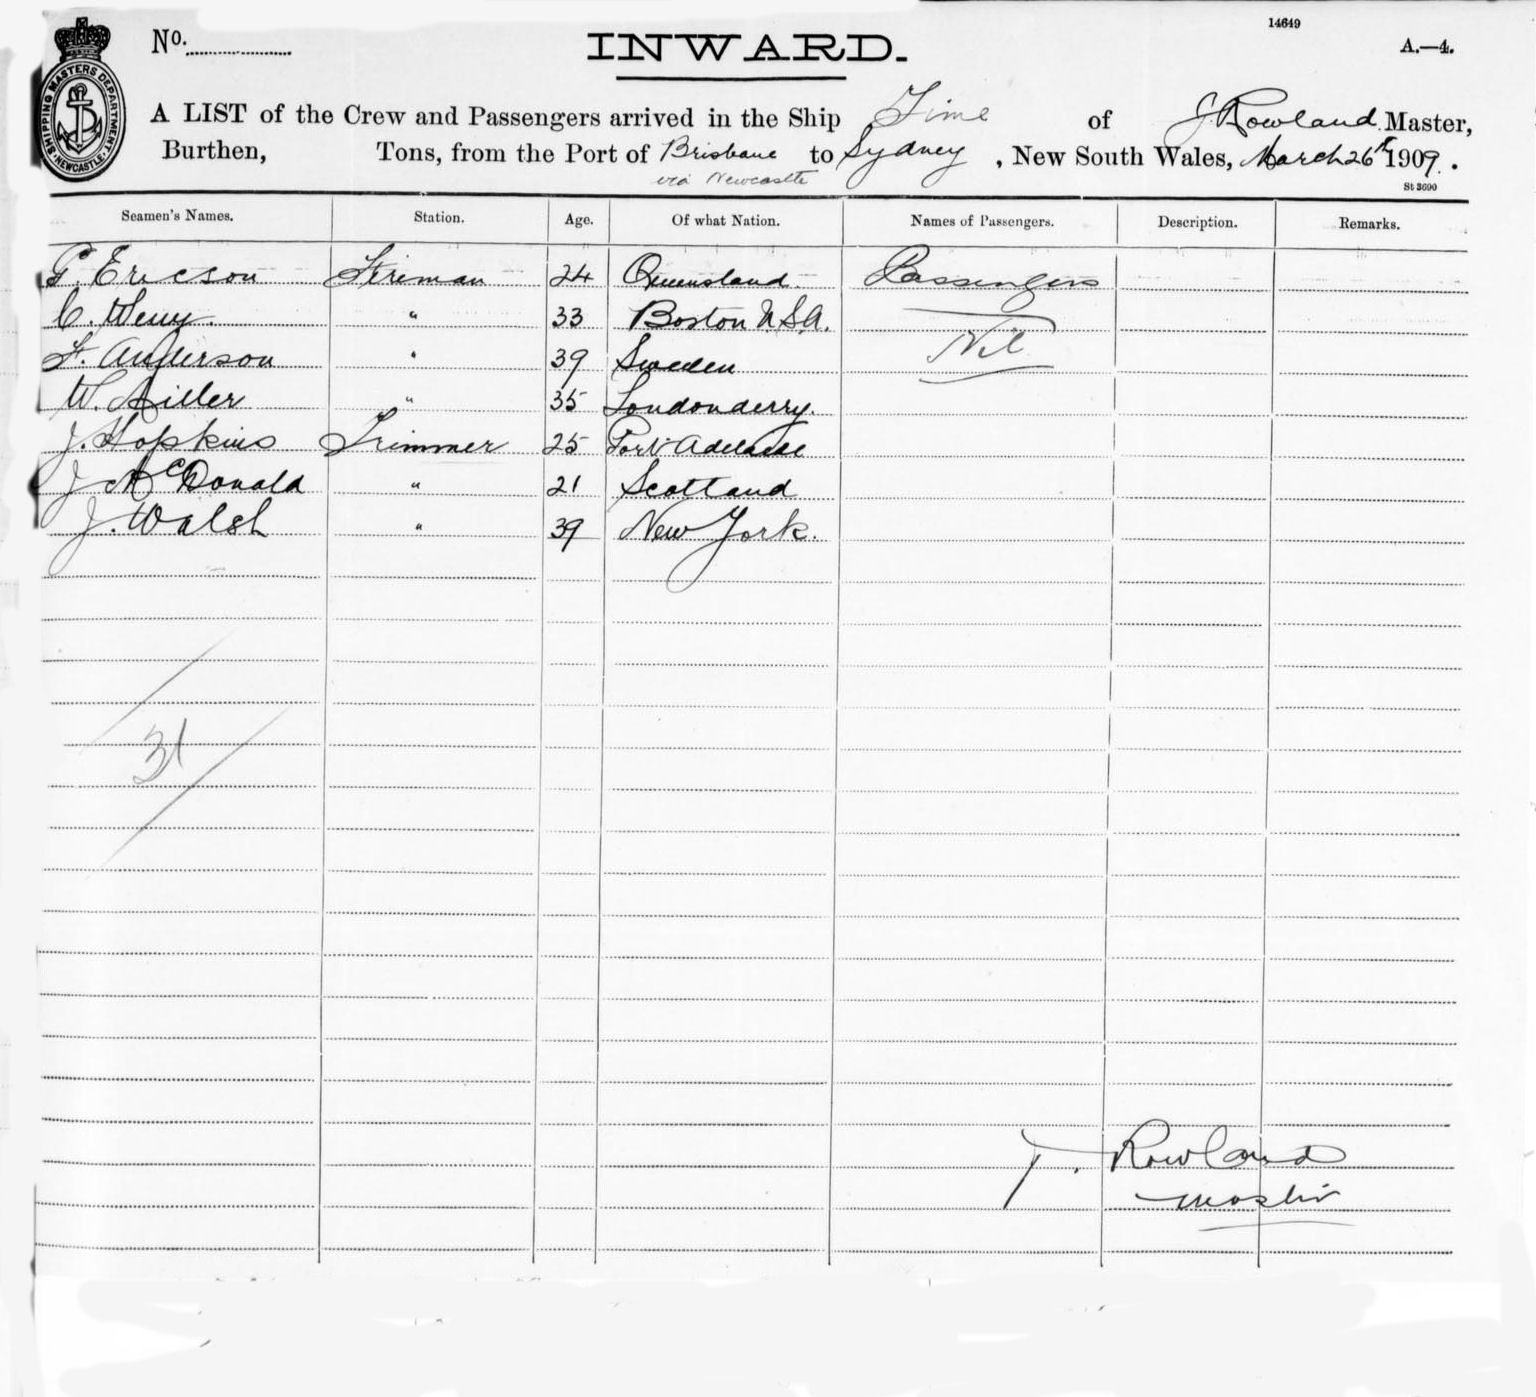 14649
No.
INWARD.
A.—4.
A LIST of the Crew and Passengers arrived in the Ship Time of J. Rowland Master,
Burthen, Tons, from the Port of Brisbane to Sydney, New South Wales, March 26th 1909.
via Newcastle
St 3690
SHIPPING MASTERS DEPARTMENT NEWCASTLE
Seamen's Names. Station. Age. Of what Nation. Names of Passengers. Description. Remarks.
Ericson Fireman 24 Queensland. Passengers
C. " 33 Boston U.S.A.
Nil
F. Anderson " 39 Sweden
W. Miller " 35 Londonderry.
J. Hopkins Trimmer 25 Port Adelaide
J McDonald " 21 Scotland
J. Walsh " 39 New York.
31
Rowland
Master